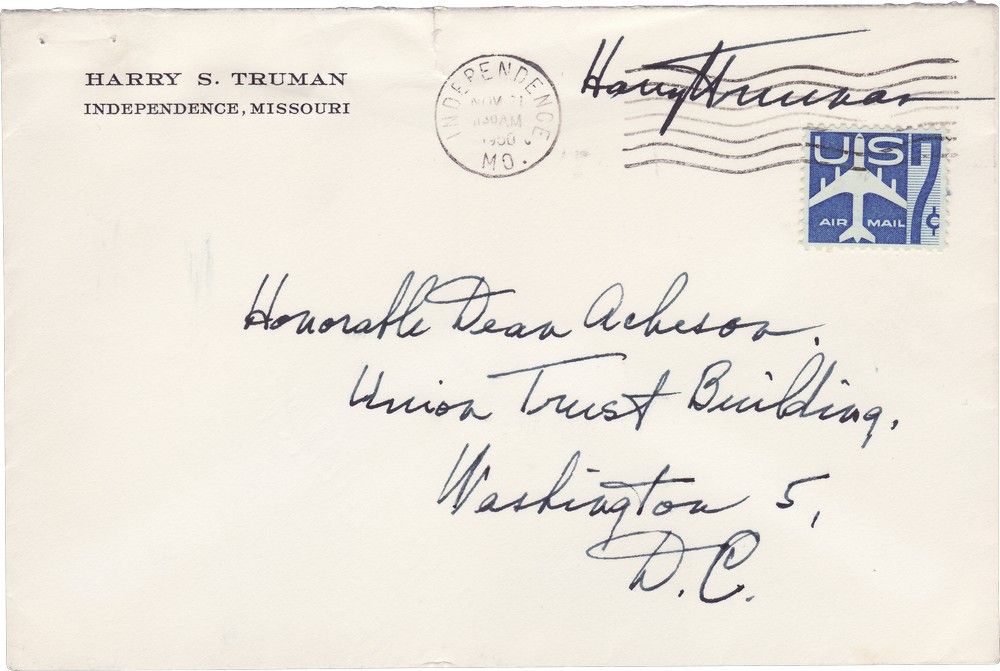 HARRY S. TRUMAN
INDEPENDENCE, MISSOURI
INDEPENDENCE
NOV
AM
MO.
Harry Truman
US
7¢
AIR MAIL
Honorable Dean Acheson,
Union Trust Building,
Washington 5,
D.C.